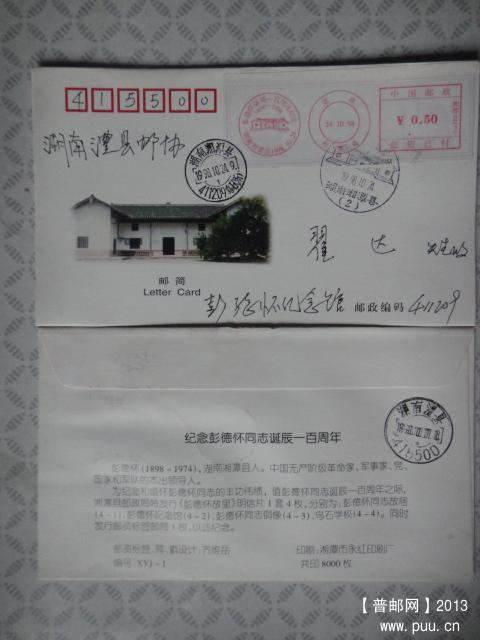 415500
中国邮政
¥ 0.50
邮资已付
24.10.98
湖南澧县邮协
湖南湘潭县
1998.10.24.9
411209
1998.10.24
(2)
翟 达 先生收
邮 简
Letter Card
彭德怀纪念馆 邮政编码 411209
湖南澧县
415500
纪念彭德怀同志诞辰一百周年
彭德怀(1898-1974),湖南湘潭县人。中国无产阶级革命家、军事家、党、
国家和军队的杰出领导人。
为纪念和缅怀彭德怀同志的丰功伟绩,值彭德怀同志诞辰一百周年之际,
湘潭县邮政局特发行《彭德怀故里》明信片1套4枚,分别为:彭德怀同志故居
(4-1)、彭德怀纪念馆(4-2)、彭德怀同志铜像(4-3)、乌石学校(4-4)。同时
发行邮资标签邮简1枚,以兹纪念。
邮资标签、简、戳设计:齐维岳 印刷:湘潭市永红印刷厂
编号:XYJ-1 共印8000枚
【普邮网】2013
www.puu.cn